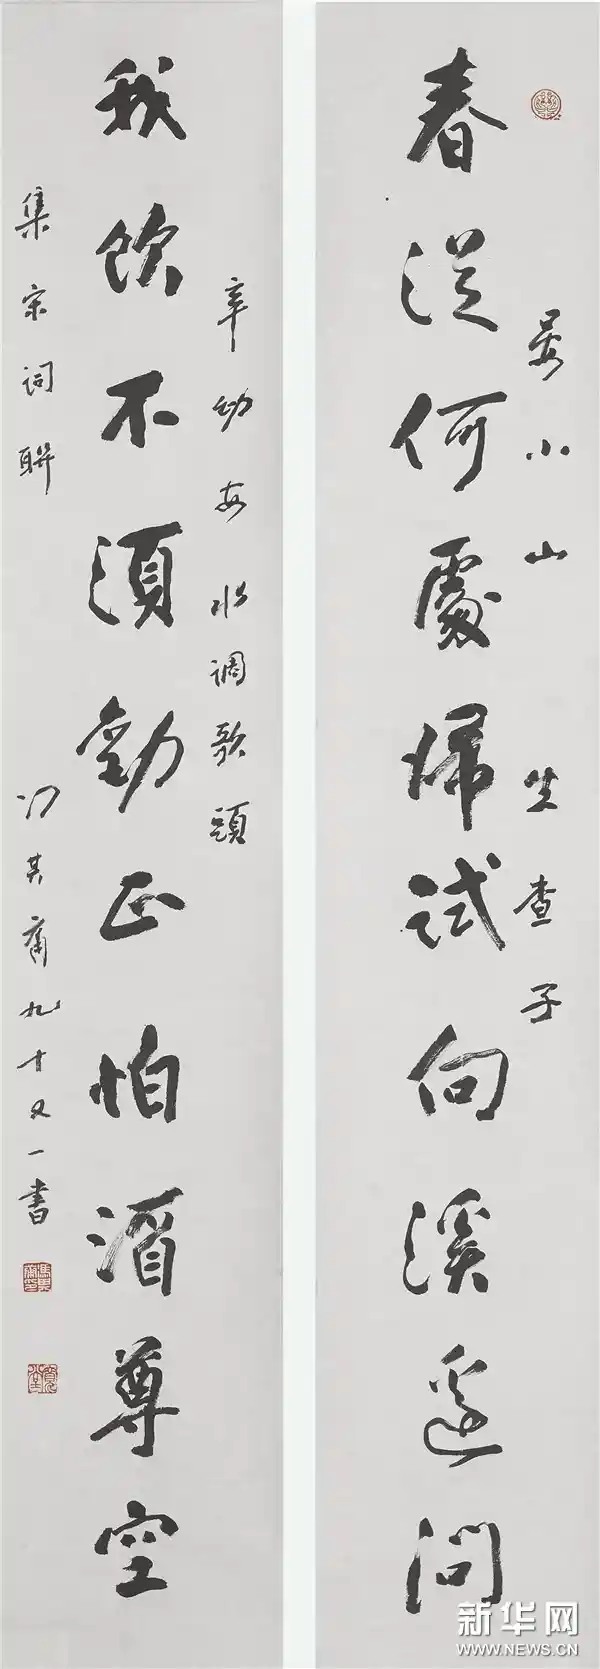 春從何處歸試向溪邊問
晏小山 生查子
我飲不須勸正怕酒尊空
辛幼安 水調歌頭
集宋詞聯
冯其庸九十又一書
新华网
WWW.NEWS.CN